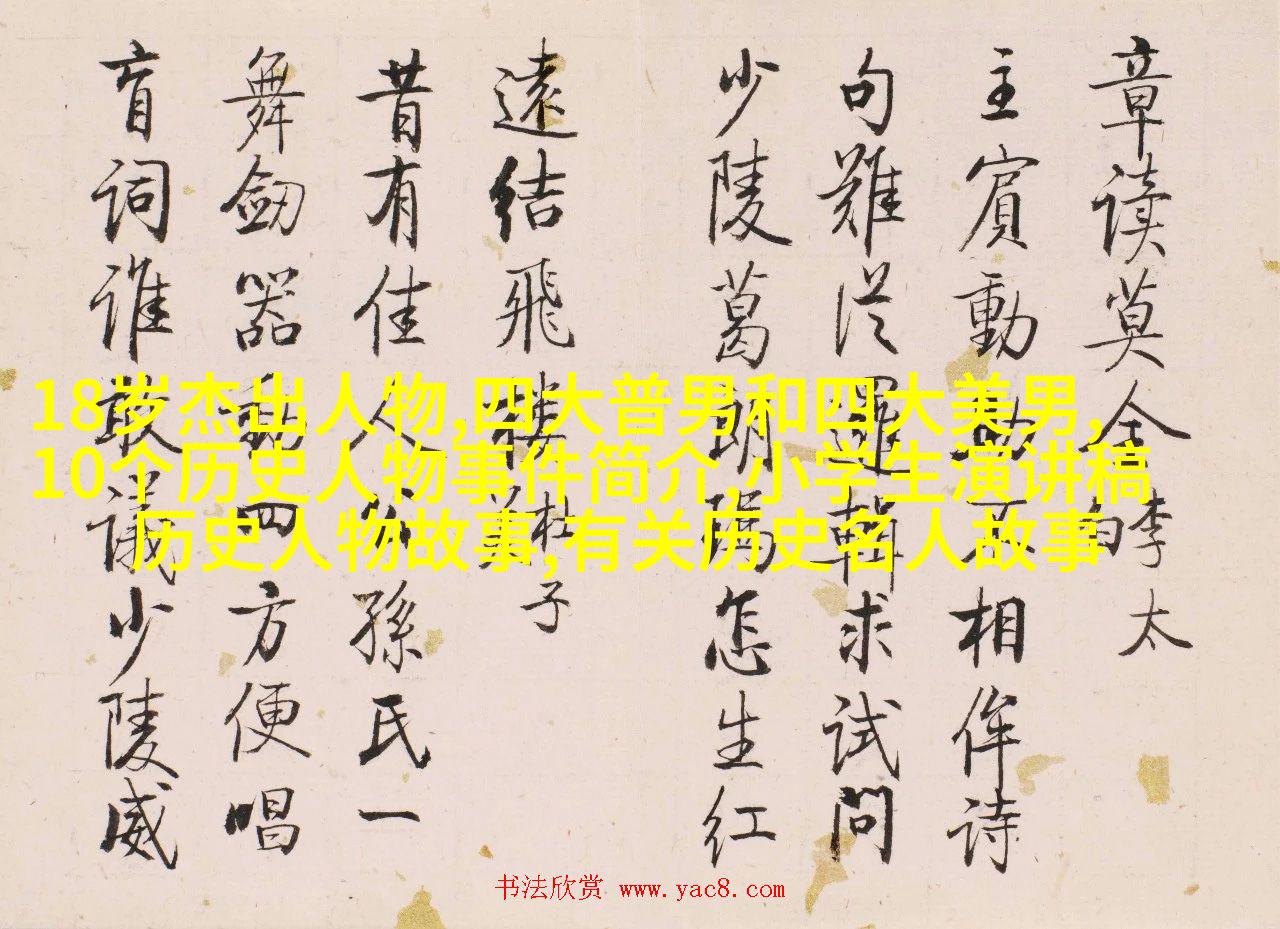 章读莫全李太白
主賓動助不相侔诗
句難從邏輯求试問
少陵葛朗瑪怎生红
遠结飛樓杜子美
昔有佳人公孫氏一
舞劒器動四方便唱
盲词誰敢議少陵威
18岁杰出人物,四大普男和四大美男,
10个历史人物事件简介,小学生演讲稿
历史人物故事,有关历史名人故事
书法欣赏 www.yac8.com